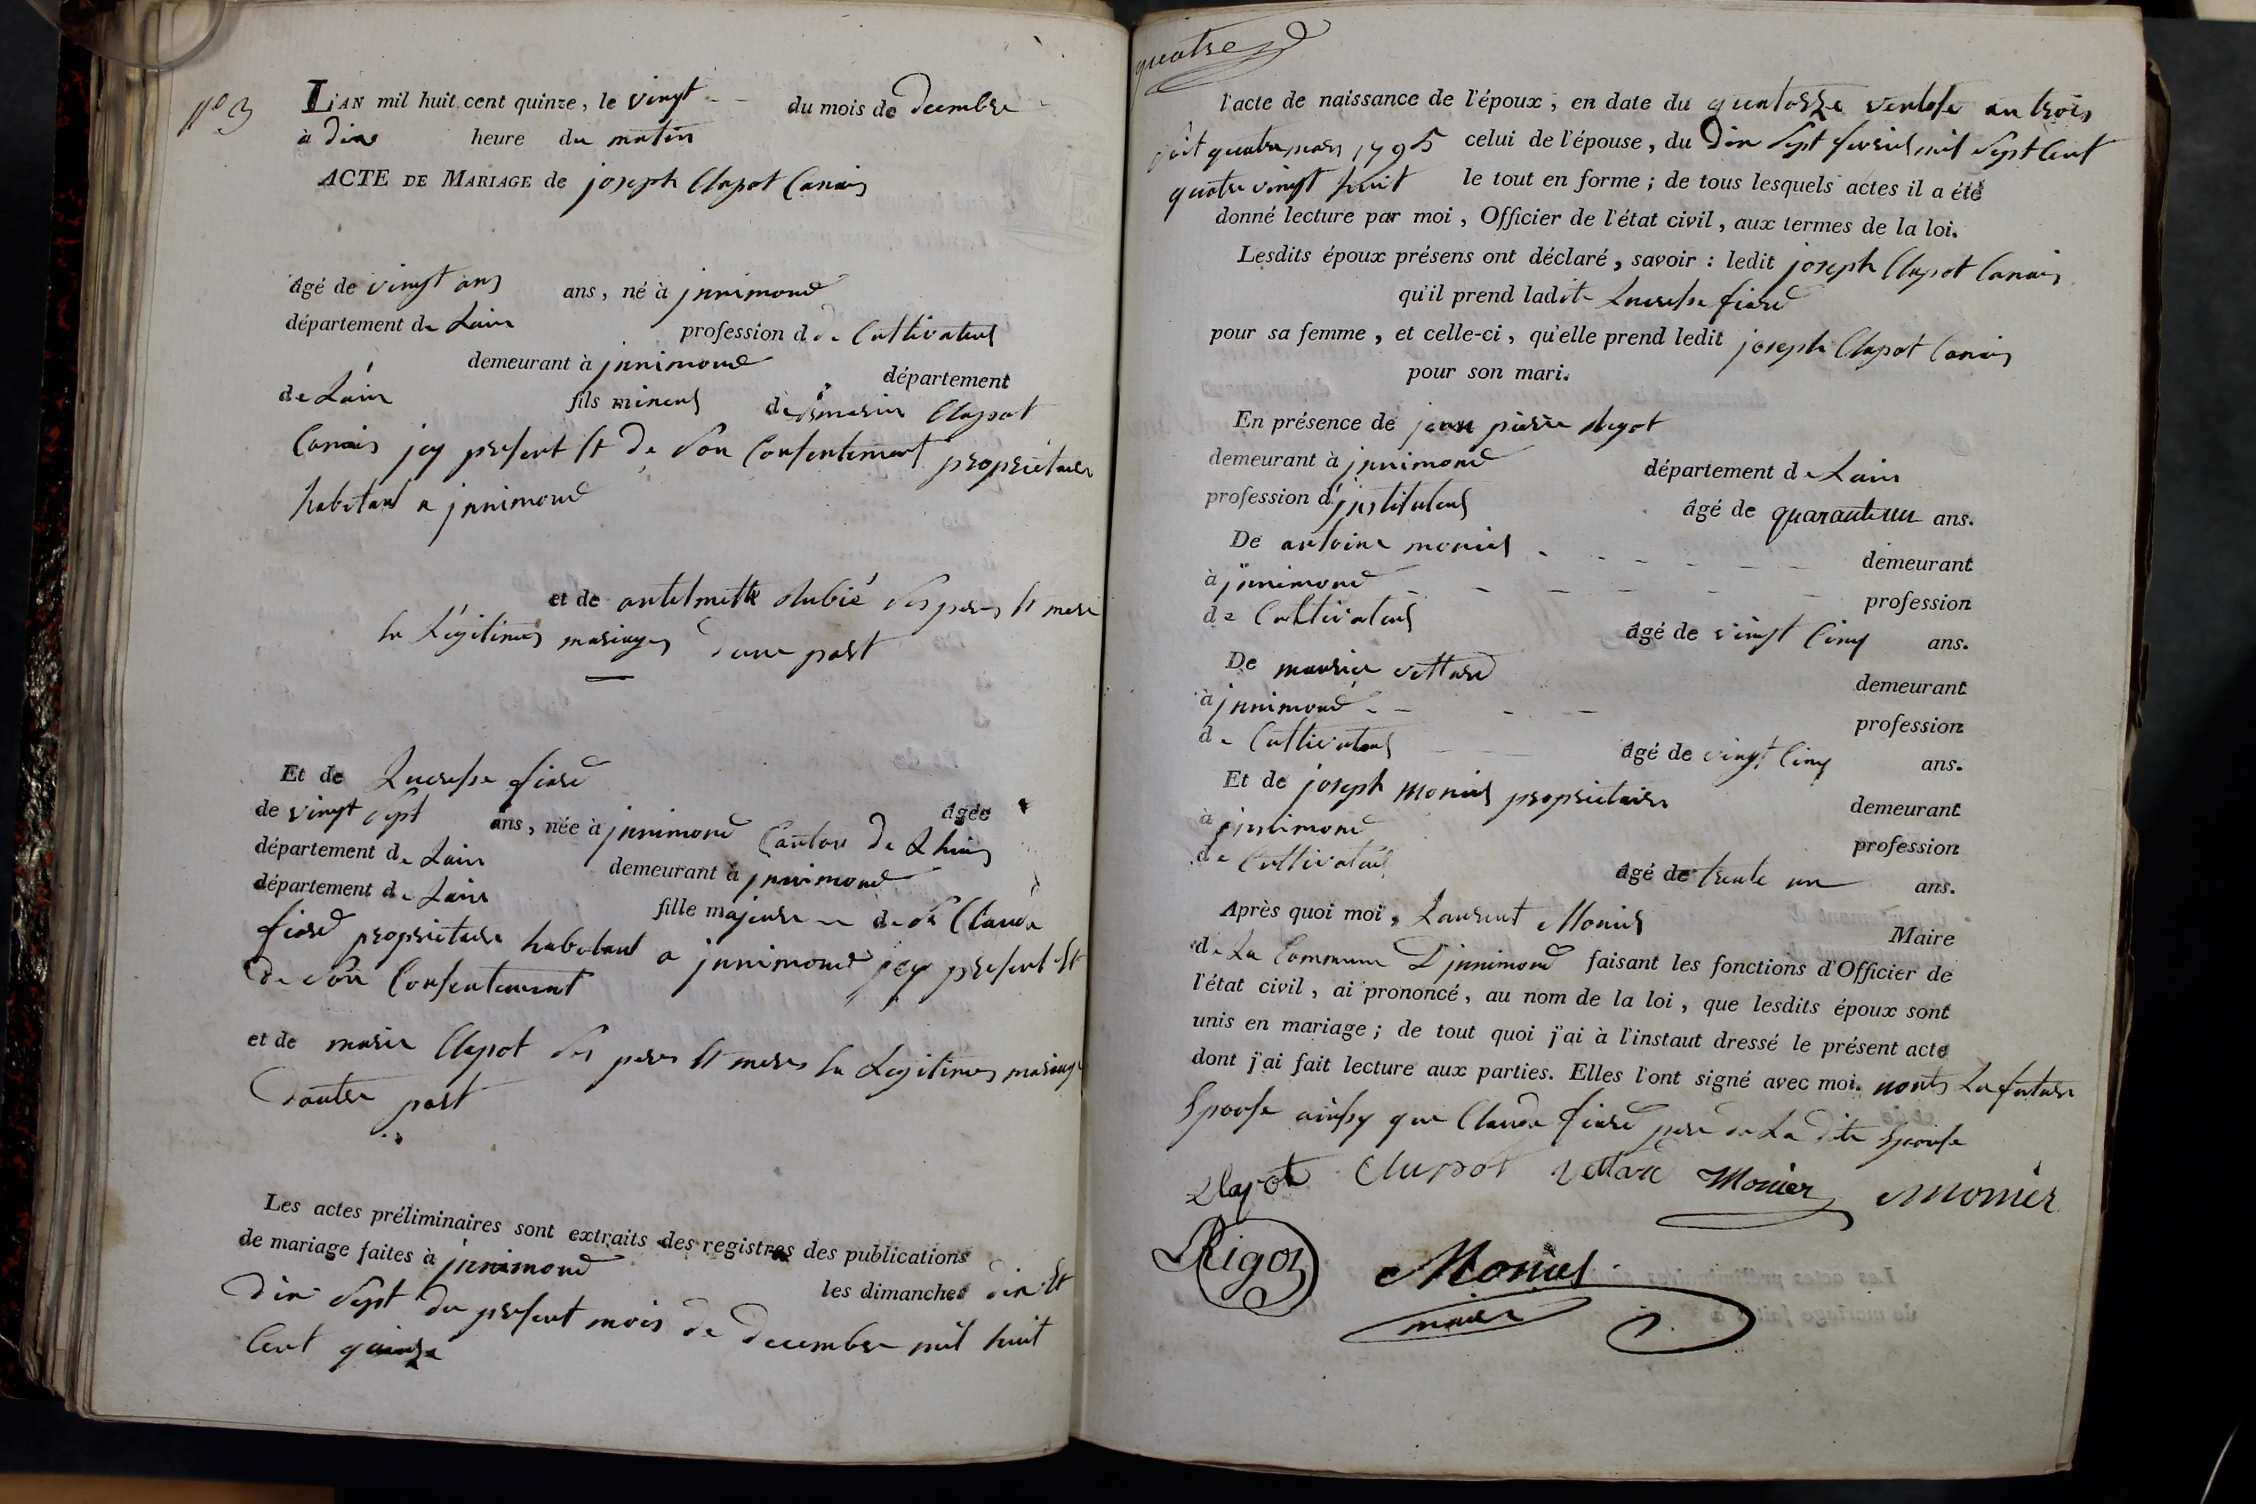 nº 3
L'AN mil huit cent quinze, le vingt du mois de decembre
à dix heure du matin
ACTE DE MARIAGE de joseph Clapot Canais
âgé de vingt ans ans, né à jnnimond
département de Lain profession d de Cultivateur
demeurant à jnnimond département
de Lain fils mineur de Clapot
Canais jcy present Et de son Consentement proprietaire
habitant a jnnimond
et de antelmette dubié ses peres Et mere
en Légitimes mariages dune part
Et de Lucresse fiard âgée
de vingt sept ans, née à jnnimond Canton de Lhuis
département de Lain demeurant à jnnimond
département de Lain fille majeure de Sr Claude
fiard proprietaire habitant a jnnimond jcy present Et
de son Consentement
et de marie Clapot ses peres Et meres en Legitimes mariage
dautre part
Les actes préliminaires sont extraits des registres des publications
de mariage faites à jnnimond les dimanches dix Et
dix sept du present mois de decembre mil huit
Cent quinze
quatre
l'acte de naissance de l'époux, en date du quatorze ventose an trois
soit quatre mars 1795 celui de l'épouse, du dix sept fevrier mil sept Cent
quatre vingt huit le tout en forme; de tous lesquels actes il a été
donné lecture par moi, Officier de l'état civil, aux termes de la loi.
Lesdits époux présens ont déclaré, savoir: ledit joseph Clapot Canais
qu'il prend ladite Lucresse fiard
pour sa femme, et celle-ci, qu'elle prend ledit joseph Clapot Canais
pour son mari.
En présence de jean pierre
demeurant à jnnimond département de Lain
profession d'jnstituteur âgé de quarante un ans.
De antoine monier demeurant
à jnnimond profession
de Cultivateur âgé de vingt Cinq ans.
De maurice vettard demeurant
à jnnimond profession
de Cultivateur âgé de vingt Cinq ans.
Et de joseph monier proprietaire demeurant
à jnnimond profession
de Cultivateur âgé de trente un ans.
Après quoi moi, Laurent Monier Maire
de La Commune D'jnnimond faisant les fonctions d'Officier de
l'état civil, ai prononcé, au nom de la loi, que lesdits époux sont
unis en mariage; de tout quoi j'ai à l'instaut dressé le présent acte
dont j'ai fait lecture aux parties. Elles l'ont signé avec moi. nonts La future
Epouse ainssy que Claude fiard pere de La dite Epouse
Clapot Clapot vettard Monier Monier
Rigot Monier
maire